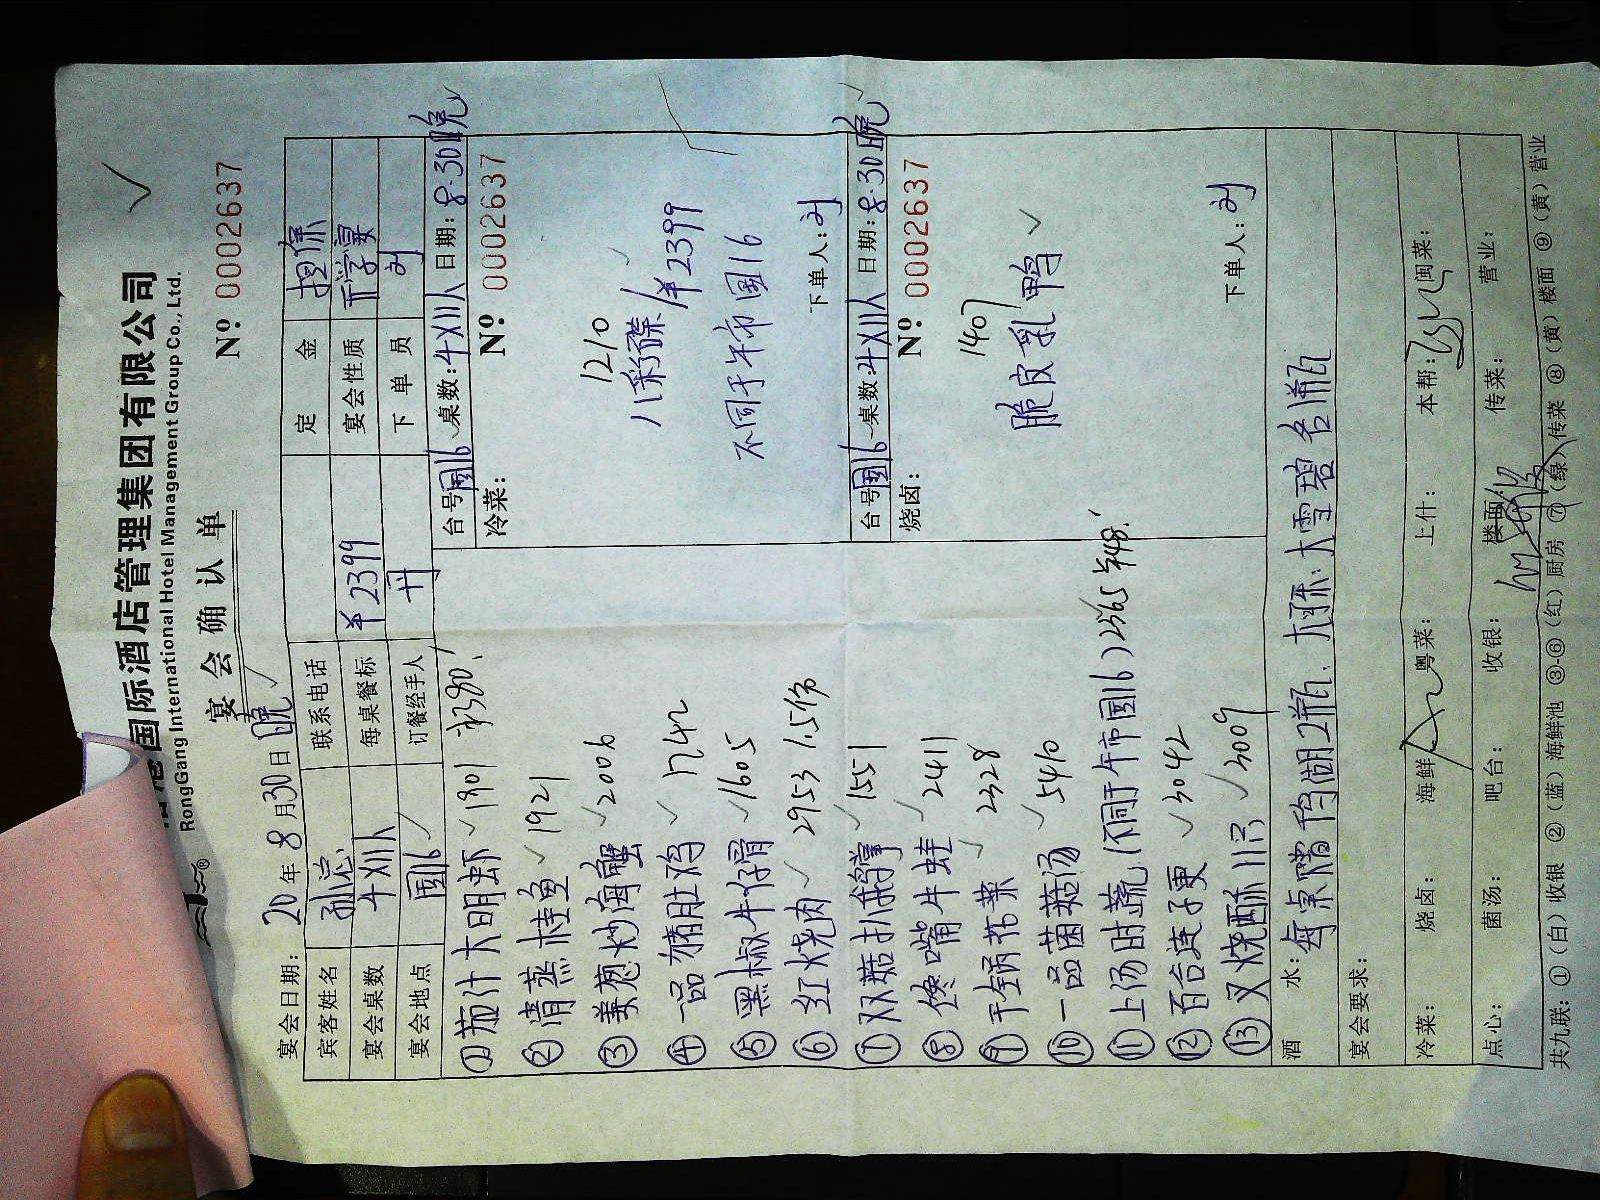 国际酒店管理集团有限公司
RongGang International Hotel Management Group Co., Ltd.
宴会确认单
Nº 0002637
宴会日期: 20 年 8 月 30 日 晚
宾客姓名 孙总 联系电话 定金 担保
宴会桌数 每桌餐标 ¥2399 宴会性质 升学宴
宴会地点 国16 订餐经手人 丹 下单员 刘
① 茄汁大明虾 1901
② 清蒸桂鱼 1921
③ 姜葱炒海蟹 2006
④ 一品猪肚鸡 1742
⑤ 黑椒牛仔骨 1605
⑥ 红烧肉 2953 1.5份
⑦ 双菇扒鹅掌 1551
⑧ 馋嘴牛蛙 2411
⑨ 干锅花菜 2328
⑩ 一品菌菇汤 5410
⑪ 上汤时蔬(不同于午市国16) 2565
⑫ 百合莲子更 3042
⑬ 叉烧酥11只 3009
台号 国16 桌数: 日期: 8.30晚
冷菜: Nº 0002637
1210
八彩碟/¥2399
不同于午市国16
下单人: 刘
台号 国16 桌数: 日期: 8.30晚
烧卤: Nº 0002637
1407
脆皮乳鸭
下单人: 刘
酒水: 每桌赠鸭湖2瓶、大可乐·大雪碧各1瓶
宴会要求:
冷菜: 烧卤: 海鲜 粤菜: 上什: 本帮: 闽菜:
点心: 菌汤: 吧台: 收银: 楼面: 传菜: 营业:
共九联: ①(白)收银 ②(蓝)海鲜池 ③-⑥(红)厨房 ⑦(绿)传菜 ⑧(黄)楼面 ⑨(黄)营业